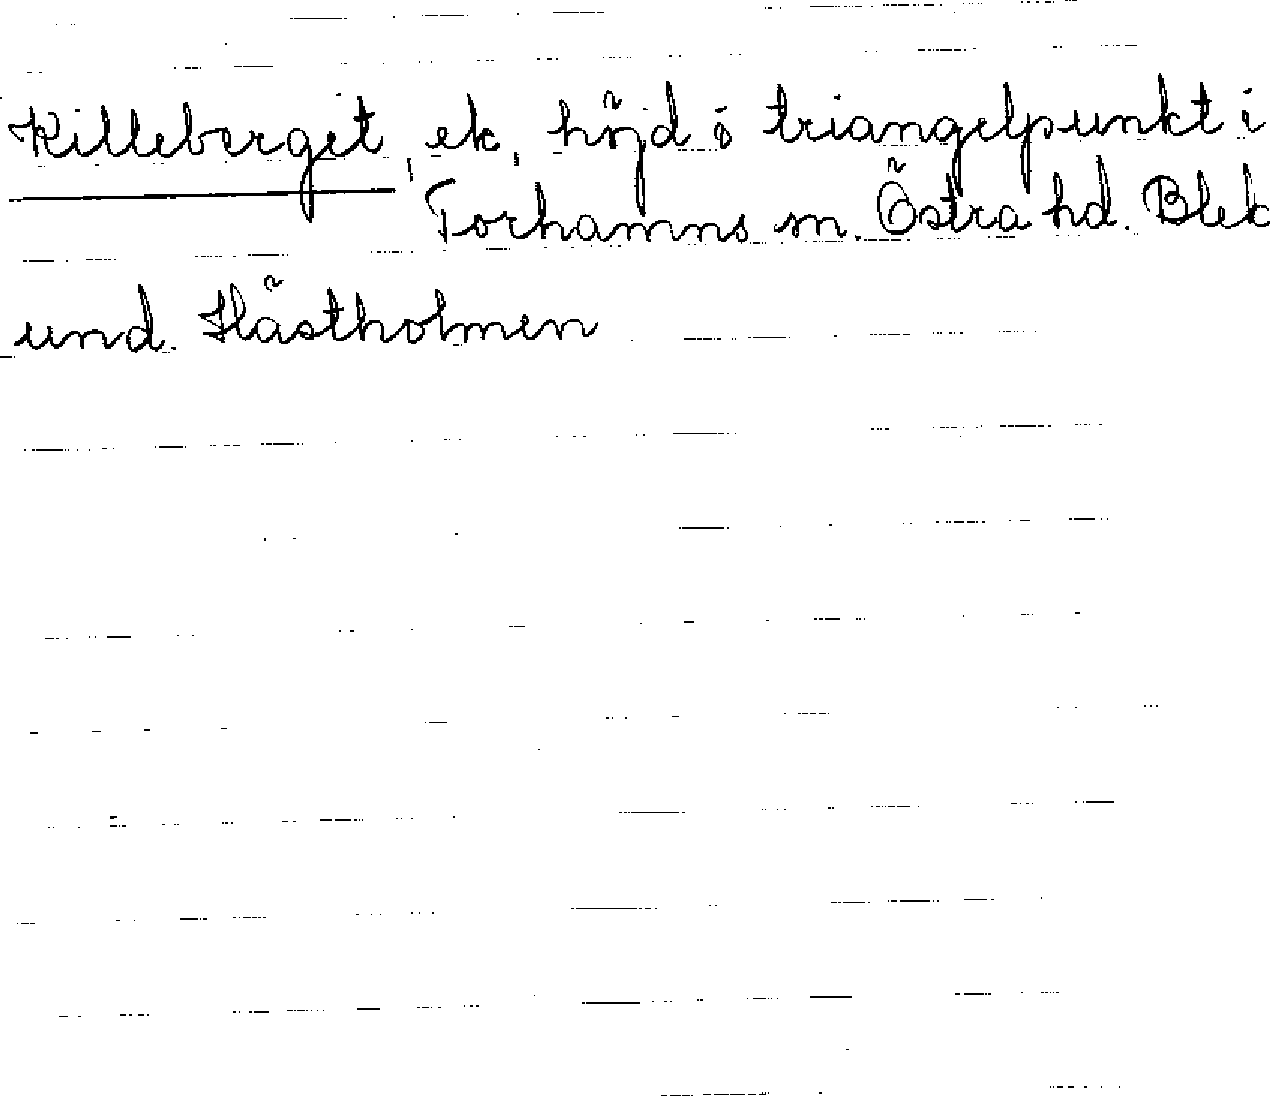 Killeberget, ek, höjd o triangelpunkt i
Torhamns sn. Östra hd. Blek
und. Hästholmen